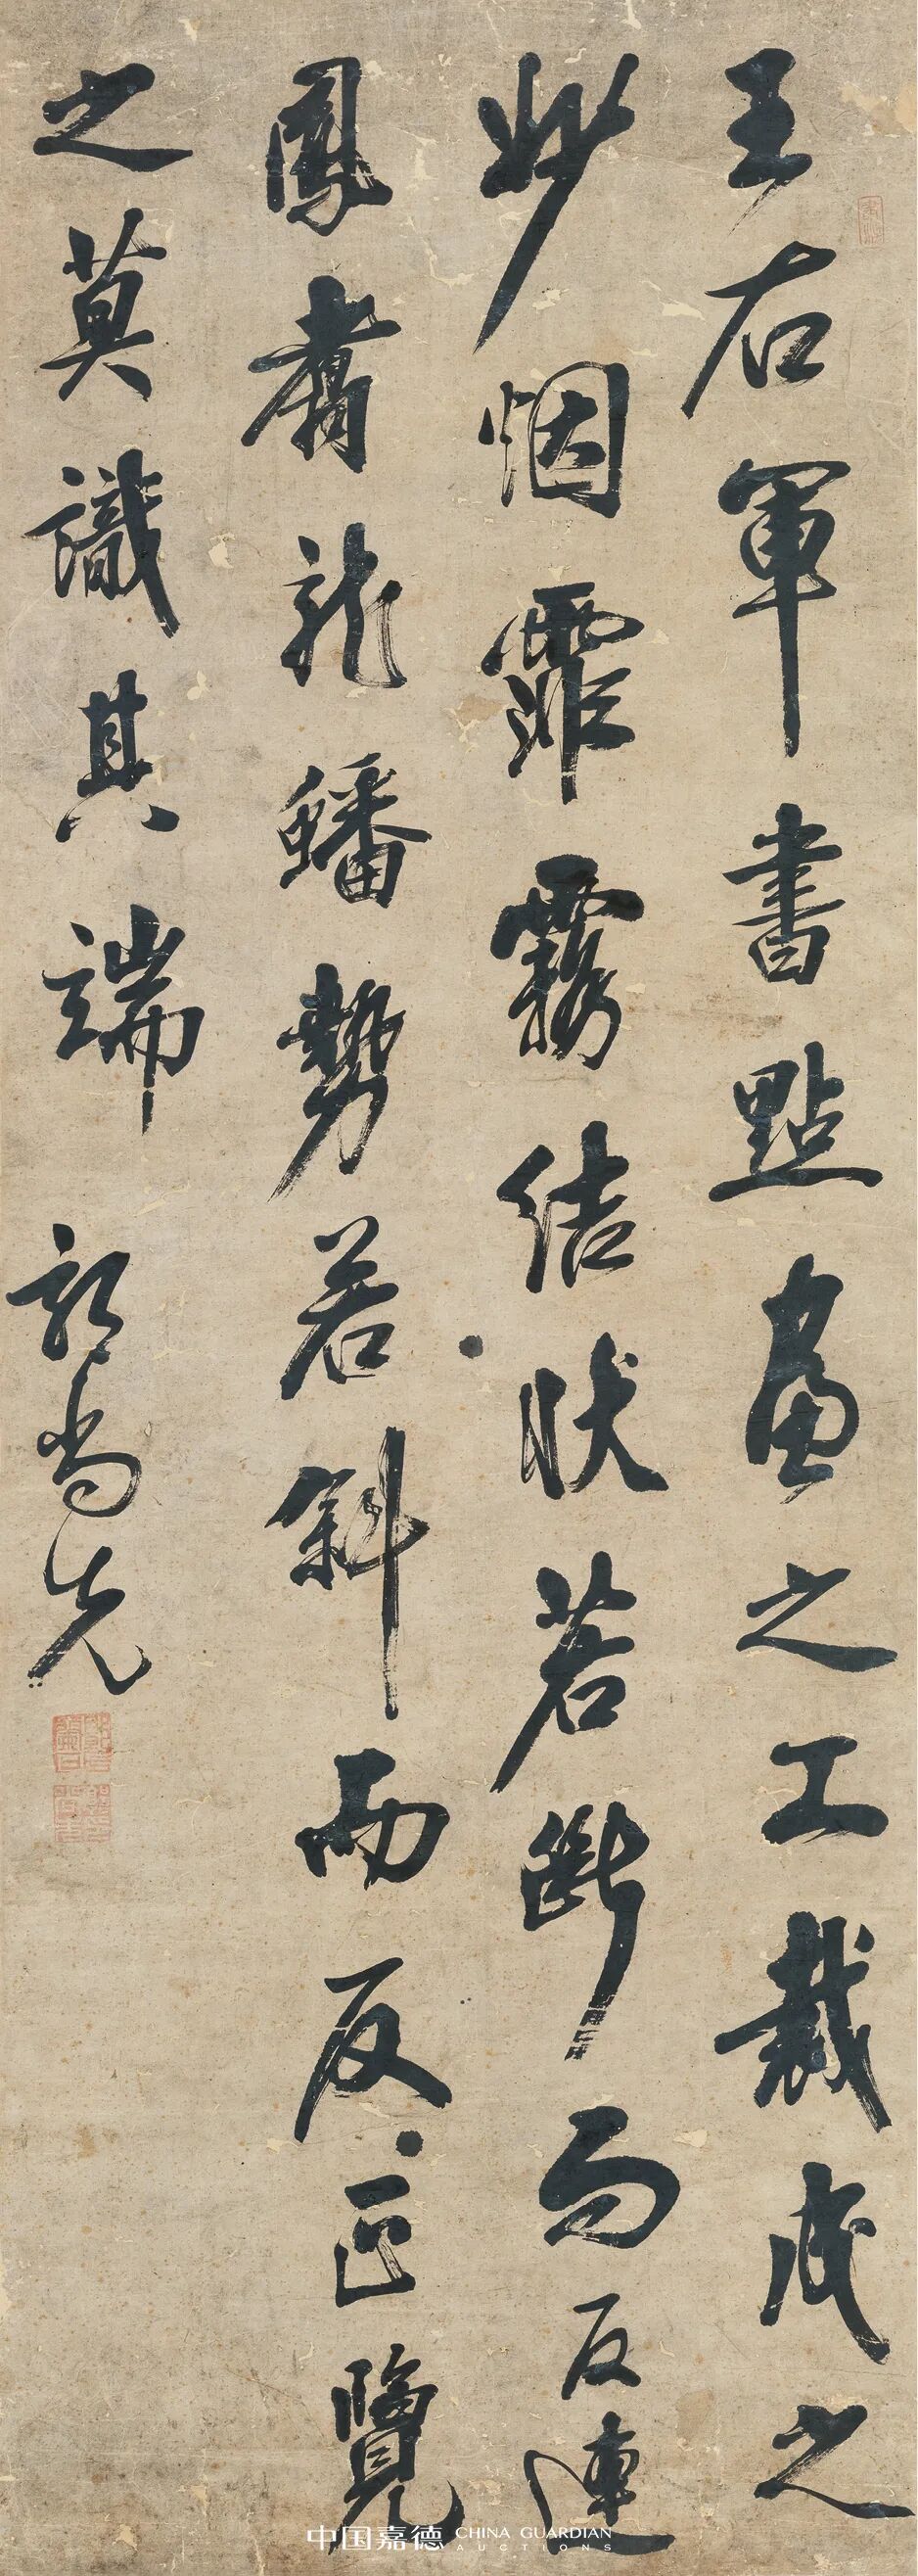 王右軍書點畫之工裁成之
妙烟霏霧結狀若斷而反連
鳳翥龍蟠勢若斜而反正覽
之莫識其端 郭尚先
中国嘉德 CHINA GUARDIAN
AUCTIONS